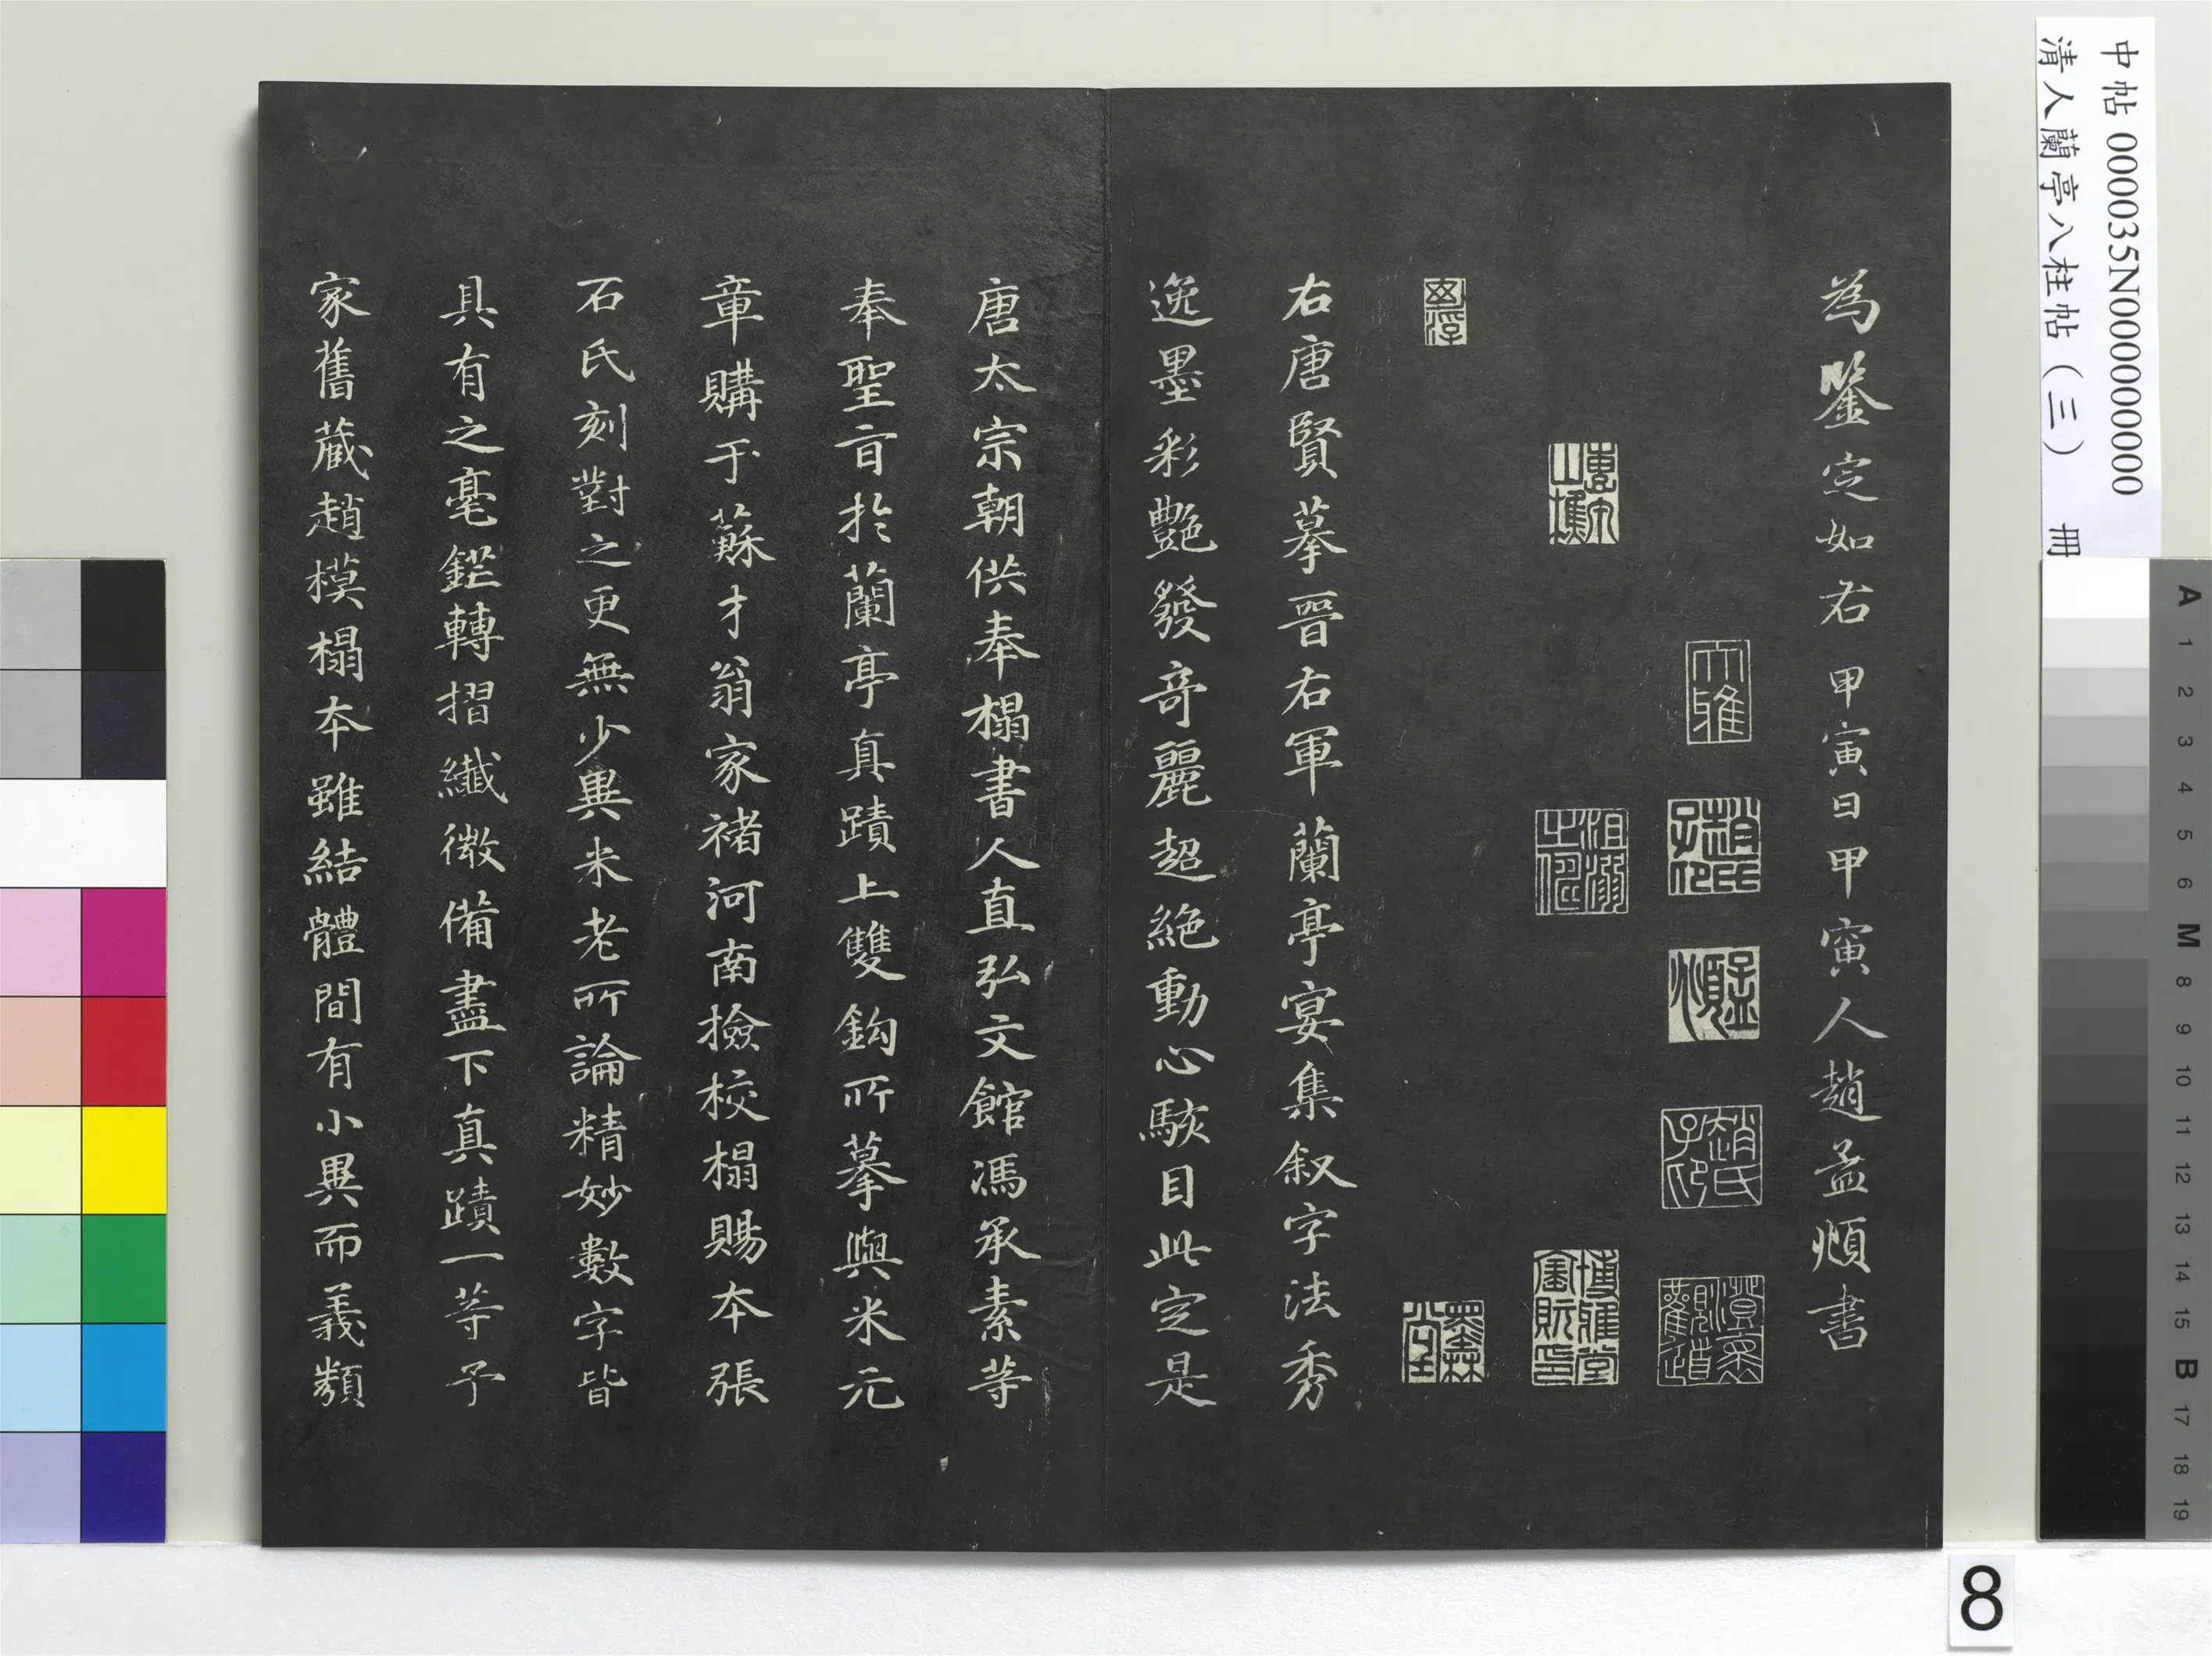 為鑒定如右甲寅日甲寅人趙孟頫書
大雅
趙氏子印
孟頫
趙氏子昂
澄懷觀道
唐寓山樵
沮溺之儔
博雅堂寶玩印
墨林堂
右唐賢摹晉右軍蘭亭宴集叙字法秀
逸墨彩艷發奇麗超絶動心駭目此定是
唐太宗朝供奉榻書人直弘文館馮承素等
奉聖旨於蘭亭真蹟上雙鈎所摹與米元
章購于蘇才翁家褚河南撿校榻賜本張
石氏刻對之更無少異米老所論精妙數字皆
具有之毫鋩轉摺纖微備盡下真蹟一等予
家舊蔵趙模榻本雖結體間有小異而義類
中帖 000035N000000000000
清人蘭亭八柱帖（三） 冊
A 1 2 3 4 5 6 M 8 9 10 11 12 13 14 15 B 17 18 19
8